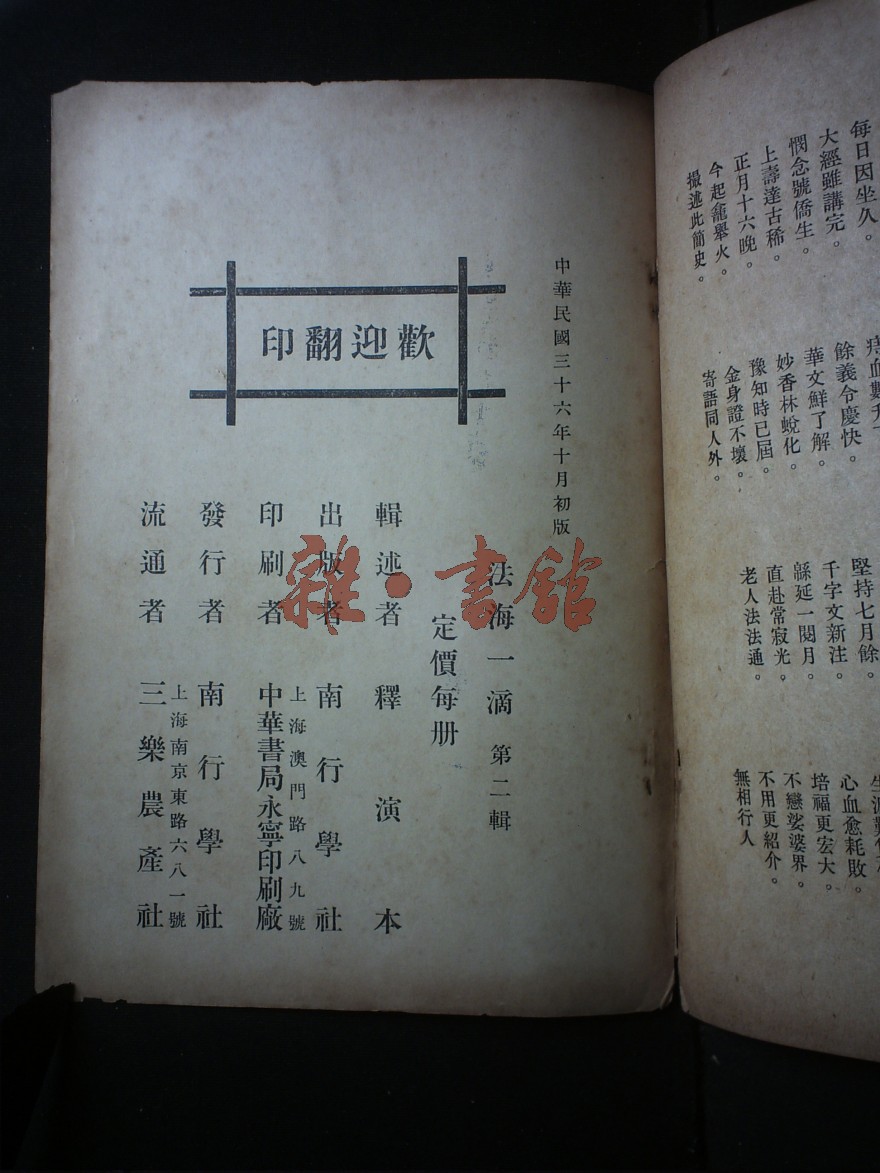 每日因坐久。
大經雖講完。餘義令慶快。堅持七月餘。
憫念號僑生。華文鮮了解。千字文新注。心血愈耗敗。
上壽達古稀。妙香林蛻化。緜延一閱月。培福更宏大。
正月十六晚。豫知時已屆。直赴常寂光。不戀娑婆界。
今起龕舉火。金身證不壞。老人法法通。不用更紹介。
撮述此簡史。寄語同人外。無相行人
中華民國三十六年十月初版
歡迎翻印
法海一滴 第二輯
定價每册
輯述者 釋演本
出版者 南行學社
上海澳門路八九號
印刷者 中華書局永寧印刷廠
發行者 南行學社
上海南京東路六八一號
流通者 三樂農產社
雜·書館